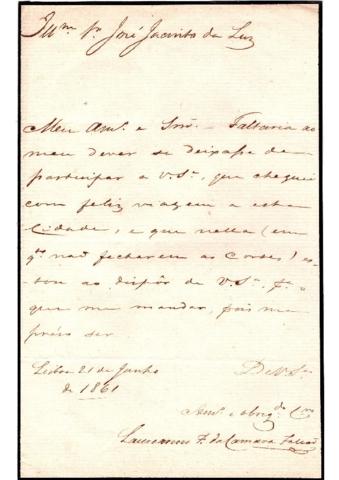 Illmo Sr José Jacinto da Luz
Meu Amo. e Snr. Faltaria ao
meu dever se deixasse de
participar a V. Sa. que cheguei
com feliz viagem a esta
Cidade, e que nella (em
qto não fecharem as Cortes) es-
tou ao dispôr de V. Sa. pa.
que me mandar, pois me
préso ser
Lisboa 21 de Junho
de 1861
De V. Sa.
Amo. e obrigdo. Cro
Laureanno F. da Camara Falcão